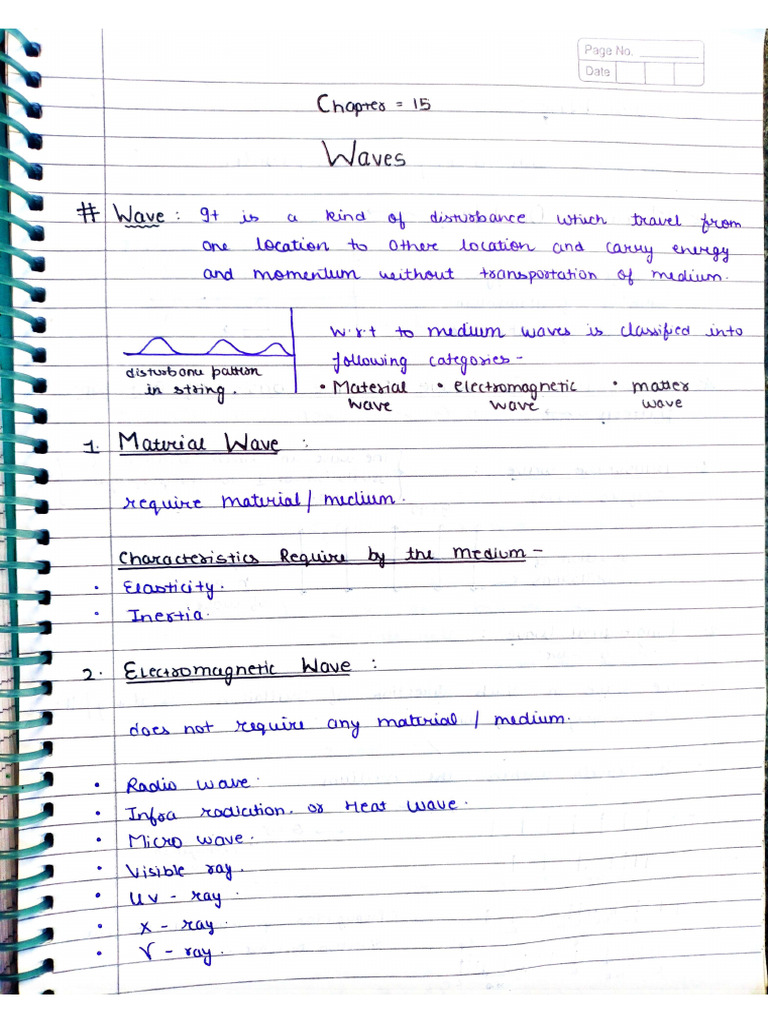 Page No.
Date
Chapter = 15
Waves
# Wave : It is a kind of disturbance which travel from
one location to other location and carry energy
and momentum without transportation of medium.
disturbane pattern
in string.
w.r.t to medium waves is classified into
following categories -
• Material wave • electromagnetic wave • matter wave
1. Material Wave :
require material / medium.
Characteristics Require by the Medium -
• Elasticity.
• Inertia.
2. Electromagnetic Wave :
does not require any material / medium.
• Radio wave.
• Infra radiation. or Heat wave.
• Micro wave.
• Visible ray.
• UV - ray.
• X - ray.
• γ - ray.